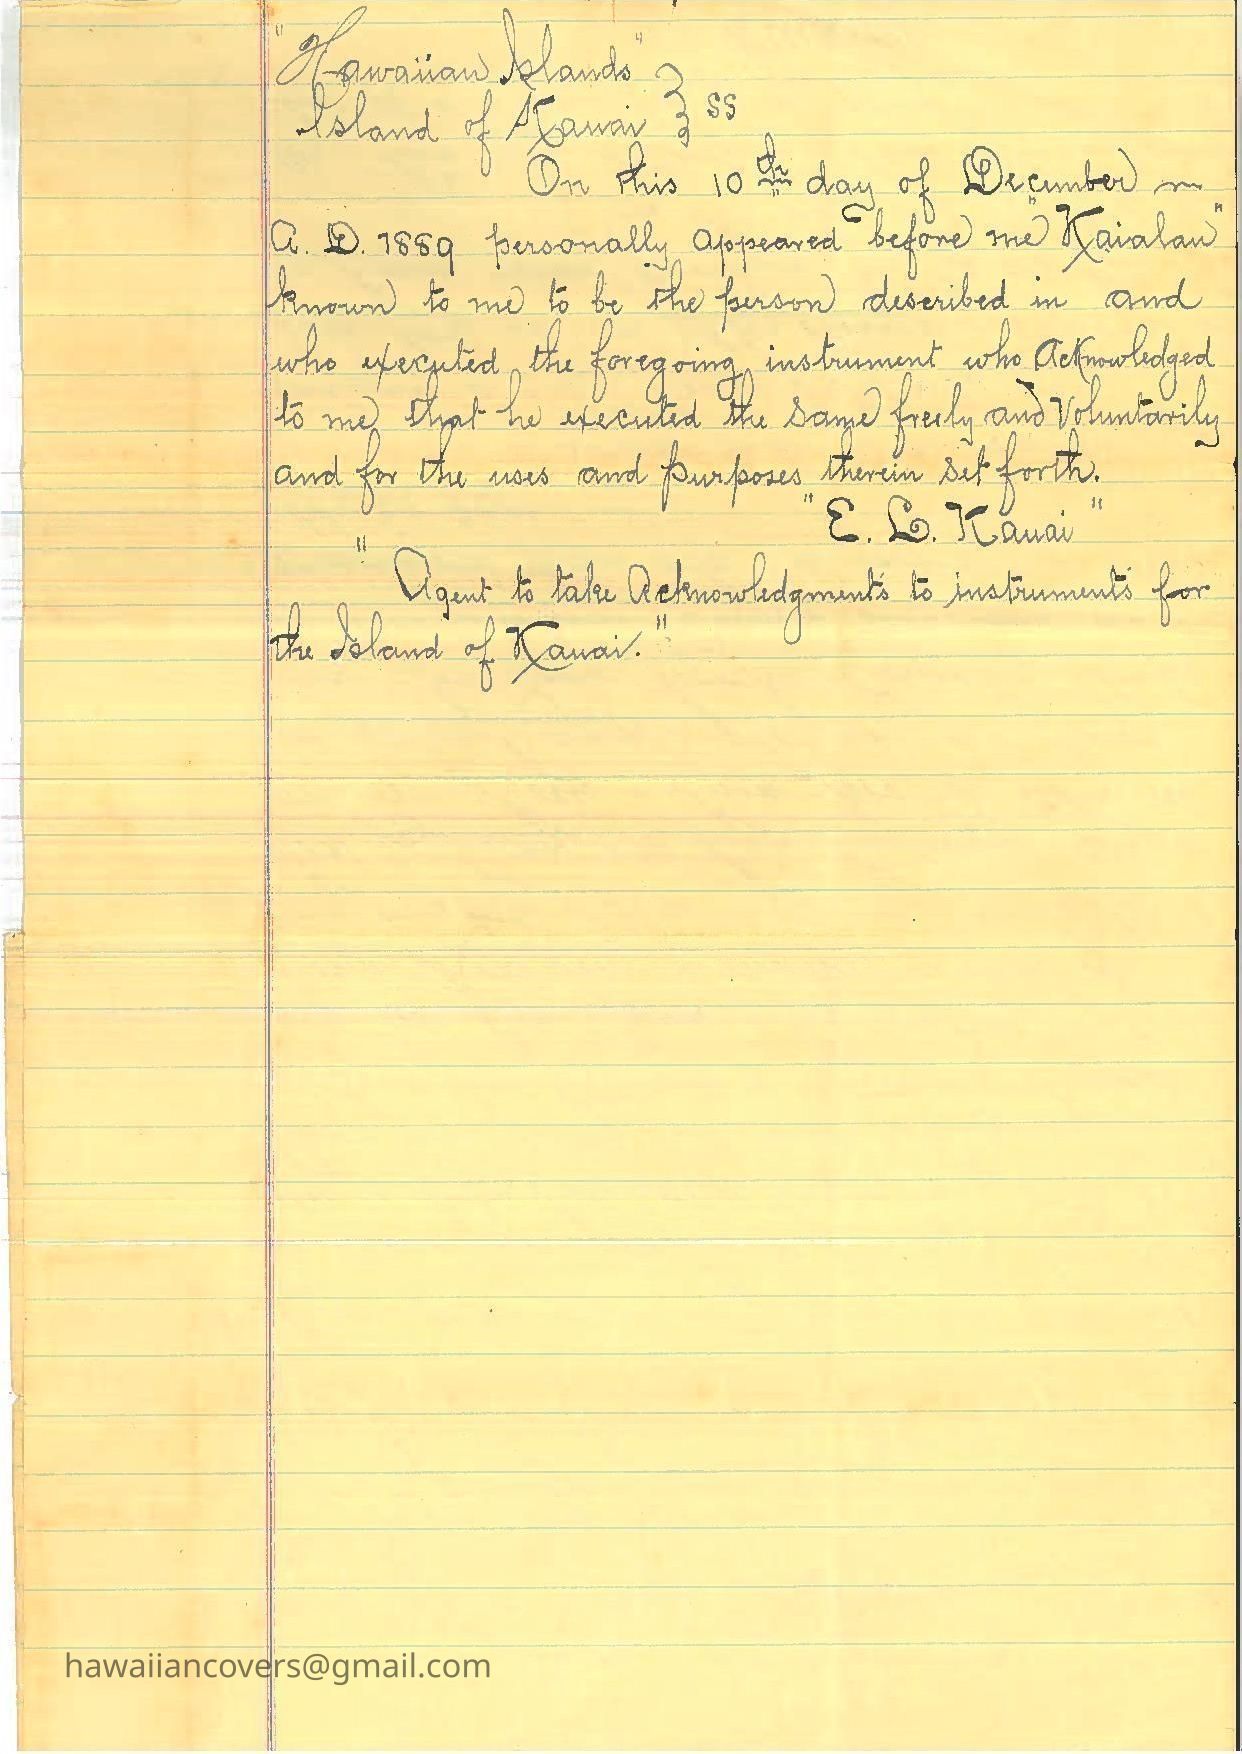 "Hawaiian Islands"
Island of Kauai } SS
On this 10th day of December
A. D. 1889 personally appeared before me "Kaialau"
known to me to be the person described in and
who executed the foregoing instrument who Acknowledged
to me that he executed the same freely and Voluntarily
and for the uses and purposes therein set forth.
"E. L. Kauai"
"Agent to take Acknowledgments to instruments for
the Island of Kauai."
hawaiiancovers@gmail.com